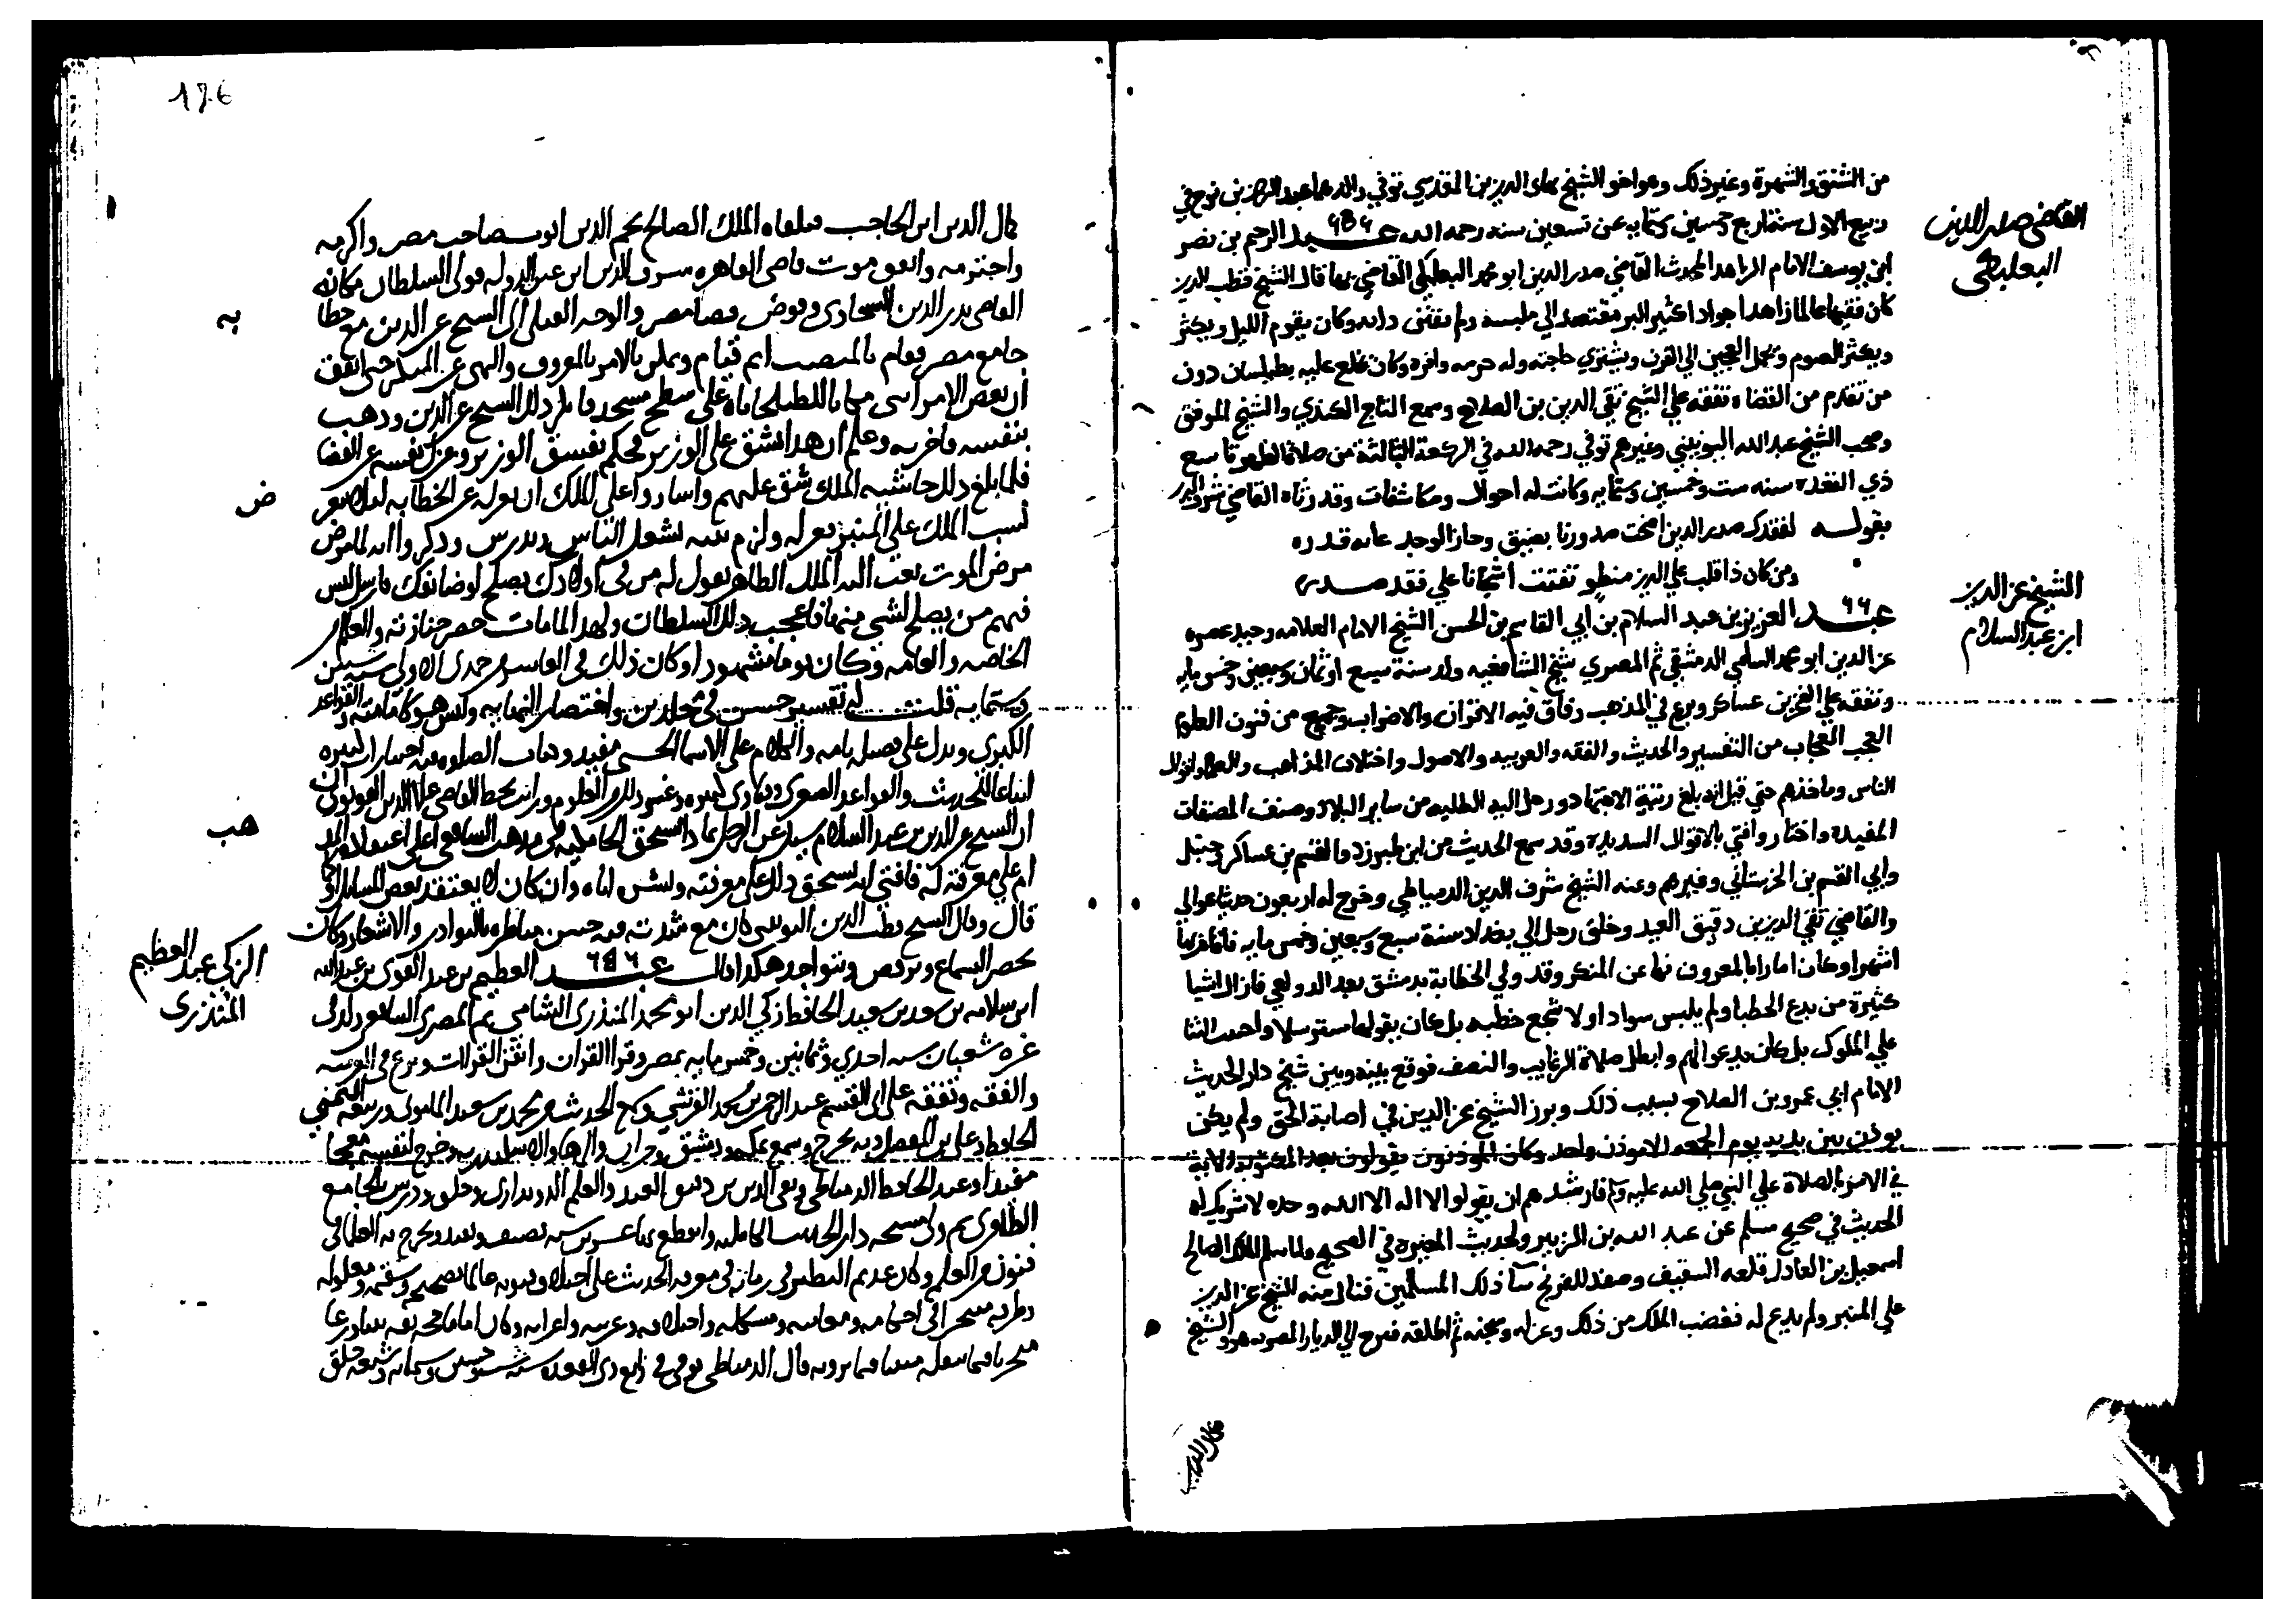 من الشنق والشهرة وغير ذلك وهو اخو الشيخ بهاى الدين بن المقدسي توفي والدهما عبد الرحمن بن نوح في
القاضي صدر الدين
البعلبكي
ربيع الاول سنة اربع خمسين وستمايه عن تسعين سنه رحمه الله ٦٥٦ عبد الرحيم بن نصر
ابن يوسف الامام الزاهد المحدث القاضي صدر الدين ابو محمد البعلبكي القاضي بها قال الشيخ قطب الدين
كان فقيها عالما زاهدا جوادا كثير البر مقتصدا في ملبسه ولم يقتنى دابه وكان يقوم الليل ويكثر
ويكثر الصوم ويحمل العجين الي الفرن ويشتري حاجته وله حرمه وافره وكان يخلع عليه بطيلسان دون
من تقدم من القضاه تفقه علي الشيخ تقي الدين بن الصلاح وسمع التاج الكندي والشيخ الموفق
وصحب الشيخ عبد الله اليونيني وغيرهم توفي رحمه الله في الركعة الثالثة من صلاة الظهر تاسع
ذي القعده سنه ست وخمسين وستمايه وكانت له احوال ومكاشفات وقد رثاه القاضي شرف الدين
بقوله لفقدك صدر الدين اضحت صدورنا بضيق وجاز الوجد غايه قدره
ومن كان ذا قلب علي الدين منطو تفتت اشجانا علي فقد صدره
الشيخ عز الدين
ابن عبد السلام
٦٦ عبد العزيز بن عبد السلام بن ابي القاسم بن الحسن الشيخ الامام العلامه وحيد عصره
عز الدين ابو محمد السلمي الدمشقي ثم المصري شيخ الشافعيه ولد سنة سبع او ثمان وسبعين وخمس مايه
وتفقه علي الفخر بن عساكر وبرع في المذهب وفاق فيه الاقران والاضراب وجمع من فنون العلوم
العجب العجاب من التفسير والحديث والفقه والعربيه والاصول واختلاف المذاهب والعلما واقوال
الناس وماخذهم حتي قيل انه بلغ رتبة الاجتهاد ورحل اليه الطلبه من ساير البلاد وصنف المصنفات
المفيدة واختار وافتي بالاقوال السديدة وقد سمع الحديث من ابن طبرزد والقسم بن عساكر وحنبل
وابي القسم بن الحرستاني وغيرهم وعنه الشيخ شرف الدين الدمياطي وخرج له اربعون حديثا عوالي
والقاضي تقي الدين بن دقيق العيد وخلق رحل الي بغداد سنة سبع وسبعين وخمس مايه فاقام بها
اشهرا وكان امارا بالمعروف نهيا عن المنكر وقد ولي الخطابة بدمشق بعد الدولعي فازال اشيا
كثيرة من بدع الخطبا ولم يلبس سوادا ولا سجع خطبه بل كان يقولها مسترسلا واجتنب الثنا
علي الملوك بل كان يدعو لهم وابطل صلاة الرغايب والنصف فوقع بينه وبين شيخ دار الحديث
الامام ابي عمرو بن الصلاح بسبب ذلك وبرز الشيخ عز الدين في اصابة الحق ولم يكن
يوذن بين يديه يوم الجمعه الا موذن واحد وكان الموذنون يقولون بعد المكتوبة الاية
في الامر بالصلاة علي النبي صلي الله عليه وسلم فارشدهم ان يقولوا لا اله الا الله وحده لا شريك له
الحديث في صحيح مسلم عن عبد الله بن الزبير ولحديث المغيرة في الصحيح ولما سلم الملك الصالح
اسمعيل بن العادل قلعه الشقيف وصفد للفرنج سآ ذلك المسلمين فنال منه الشيخ عز الدين
علي المنبر ولم يدع له فغضب الملك من ذلك وعزله وسجنه ثم اطلقه فنزح الي الديار المصريه هو والشيخ
كمال الدين ابن الحاجب فتلقاه الملك الصالح نجم الدين ايوب صاحب مصر واكرمه
واحترمه واتفق موت قاضي القاهره شرف الدين ابن عين الدوله فولى السلطان مكانه
القاضي بدر الدين السنجاري وفوض قضا مصر والوجه القبلي الى الشيخ عز الدين مع خطا
به
جامع مصر فقام بالمنصب اتم قيام وتمكن بالامر بالمعروف والنهي عن المنكر حتى اتفق
ان بعض الامرا بنى مكانا للطبلخاناه على سطح مسجد فانكر ذلك الشيخ عز الدين وذهب
بنفسه فاخربه وعلم ان هذا يشق على الوزير فحكم بفسق الوزير وعزل نفسه عن القضا
فلما بلغ ذلك حاشيه الملك شق عليهم واشاروا على الملك ان يعزله عن الخطابه ليلا يتعر
ض
لسب الملك على المنبر فعزله ولزم بيته يشغل الناس ويدرس وذكروا انه لما مرض
مرض الموت بعث اليه الملك الظاهر يقول له من في اولادك يصلح لوظايفك فارسل ليس
فيهم من يصلح لشي منها فاعجب ذلك السلطان ولهذا لما مات حضر جنازته والعالم
الخاصه والعامه وكان يوما مشهودا وكان ذلك في العاشر من جمدى الاولى سنه ستين
وستمايه قلت له تفسير حسن في مجلدين واختصار النهايه وليس هو كامنه والقواعد
الكبرى ويدل على فضل تام والكلام على الاسما الحسنى مفيد
هب
قال وقال الشيخ قطب الدين اليونيني كان مع شدته فيه حسن مناظره بالنوادر والاشعار وكان
الزكي عبد العظيم
المنذرى
يحضر السماع ويرقص ويتواجد هكذا قال ٦٥٦ عبد العظيم بن عبد القوى بن عبد الله
ابن سلامه بن سعد بن سعيد الحافظ زكي الدين ابو محمد المنذرى الشامي ثم المصرى الشافعي ولد في
غره شعبان سنه احدي وثمانين وخمس مايه بمصر وقرا القران واتقن القرات وبرع في العربيه
والفقه وتفقه على ابي القسم عبد الرحمن بن محمد القرشي
الحافظ وعلي بن المفضل وبه تخرج وسمع بمكه ودمشق وحران والرها والاسكندريه وخرج لنفسه معجما
مفيدا وعنه الحافظ الدمياطي وتقي الدين بن دقيق العيد والعلم الدويداري وخلق ودرس بالجامع
الظافرى ثم ولي مشيخه دار الحديث الكامليه وانقطع بها عشرين سنه يصنف ويفيد وتخرج به العلما في
فنون من العلم وكان عديم النظير في زمانه في معرفه الحديث على اختلاف فنونه عالما بصحيحه وسقيمه ومعلوله
وطرقه متبحرا في احكامه ومعانيه ومشكله
قال الدمياطي توفي في رابع ذى القعده سنه ست وخمسين وستمايه وشيعه خلق